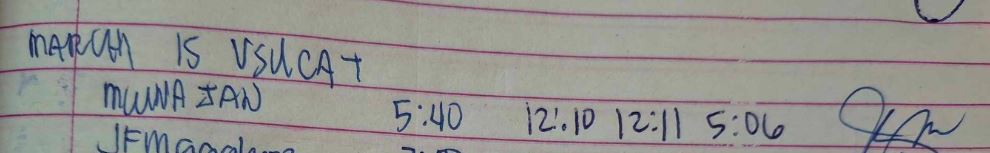 MARCH 15 VSUCAT
MUUNA JAN 5:40 12:10 12:11 5:06